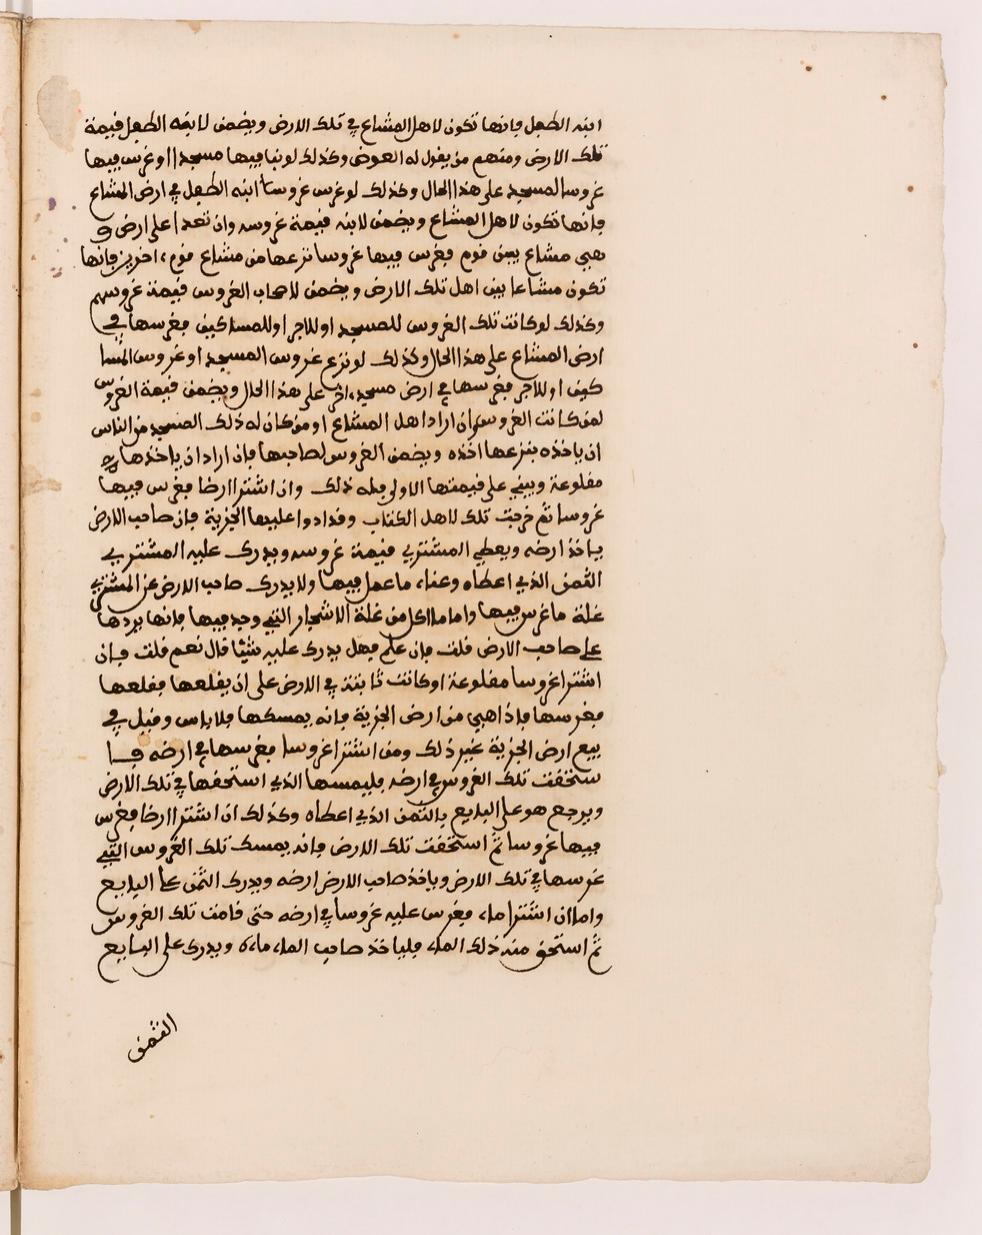 ابنه الطفل فإنها تكون لاهل المشاع في تلك الارض ويضمن لابنه الطفل قيمة
تلك الارض ومنهم من يقول له العوض وكذلك لو بنا فيها مسجدا او غرس فيها
غروسا لمسجد على هذا الحال وكذلك لو غرس غروسا ابنه الطفل في ارض المشاع
فإنها تكون لاهل المشاع ويضمن لابنه قيمة غروسه وان تعدا على ارض و
هي مشاع بين قوم فغرس فيها غروسا نزعها من مشاع قوم ءاخرين فإنها
تكون مشاعا بين اهل تلك الارض ويضمن لاصحاب الغروس قيمة غروسهم
وكذلك لو كانت تلك الغروس للمسجد او للاجر او للمساكين فغرسها في
ارض المشاع على هذا الحال وكذلك لو نزع غروس المسجد او غروس المسا
كين او للاجر فغرسها في ارض مسجد ءاخر على هذا الحال ويضمن قيمة الغروس
لمن كانت الغروس وان اراد اهل المشاع او من كان له ذلك المسجد من الناس
ان ياخذه بنزعها اخذه ويضمن الغروس لصاحبها فإن اراد ان ياخذها
مقلوعة ويبني على قيمتها الاولى فله ذلك وان اشترا ارضا فغرس فيها
غروسا ثم خرجت تلك لاهل الكتاب وقد ادوا عليها الجزية فإن صاحب الارض
ياخذ ارضه ويعطي المشتري قيمة غروسه ويدرك عليه المشتري
الثمن الذي اعطاه وعناء ما عمل فيها ولا يدرك صاحب الارض عن المشتري
غلة ما غرس فيها واما ما اكل من غلة الاشجار التي وجد فيها فإنها يردها
على صاحب الارض قلت فإن علم فهل يدرك عليه شيئا قال نعم قلت فإن
اشترا غروسا مقلوعة او كانت ثابتة في الارض على ان يقلعها فقلعها
فغرسها فإذا هي من ارض الجزية فإنه يمسكها فلا باس وقيل في
بيع ارض الجزية غير ذلك ومن اشترا غروسا فغرسها في ارضه فا
ستحقت تلك الغروس في ارضه فليمسها الذي استحقها في تلك الارض
ويرجع هو على البايع بالثمن الذي اعطاه وكذلك ان اشترا ارضا فغرس
فيها غروسا ثم استحقت تلك الارض فإنه يمسك تلك الغروس التي
غرسها في تلك الارض وياخذ صاحب الارض ارضه ويدرك الثمن على البايع
واما ان اشترا ماء فغرس عليه غروسا في ارضه حتى قامت تلك الغروس
ثم استحق منه ذلك الماء فلياخذ صاحب الماء ماءه ويدرك على البايع
الثمن